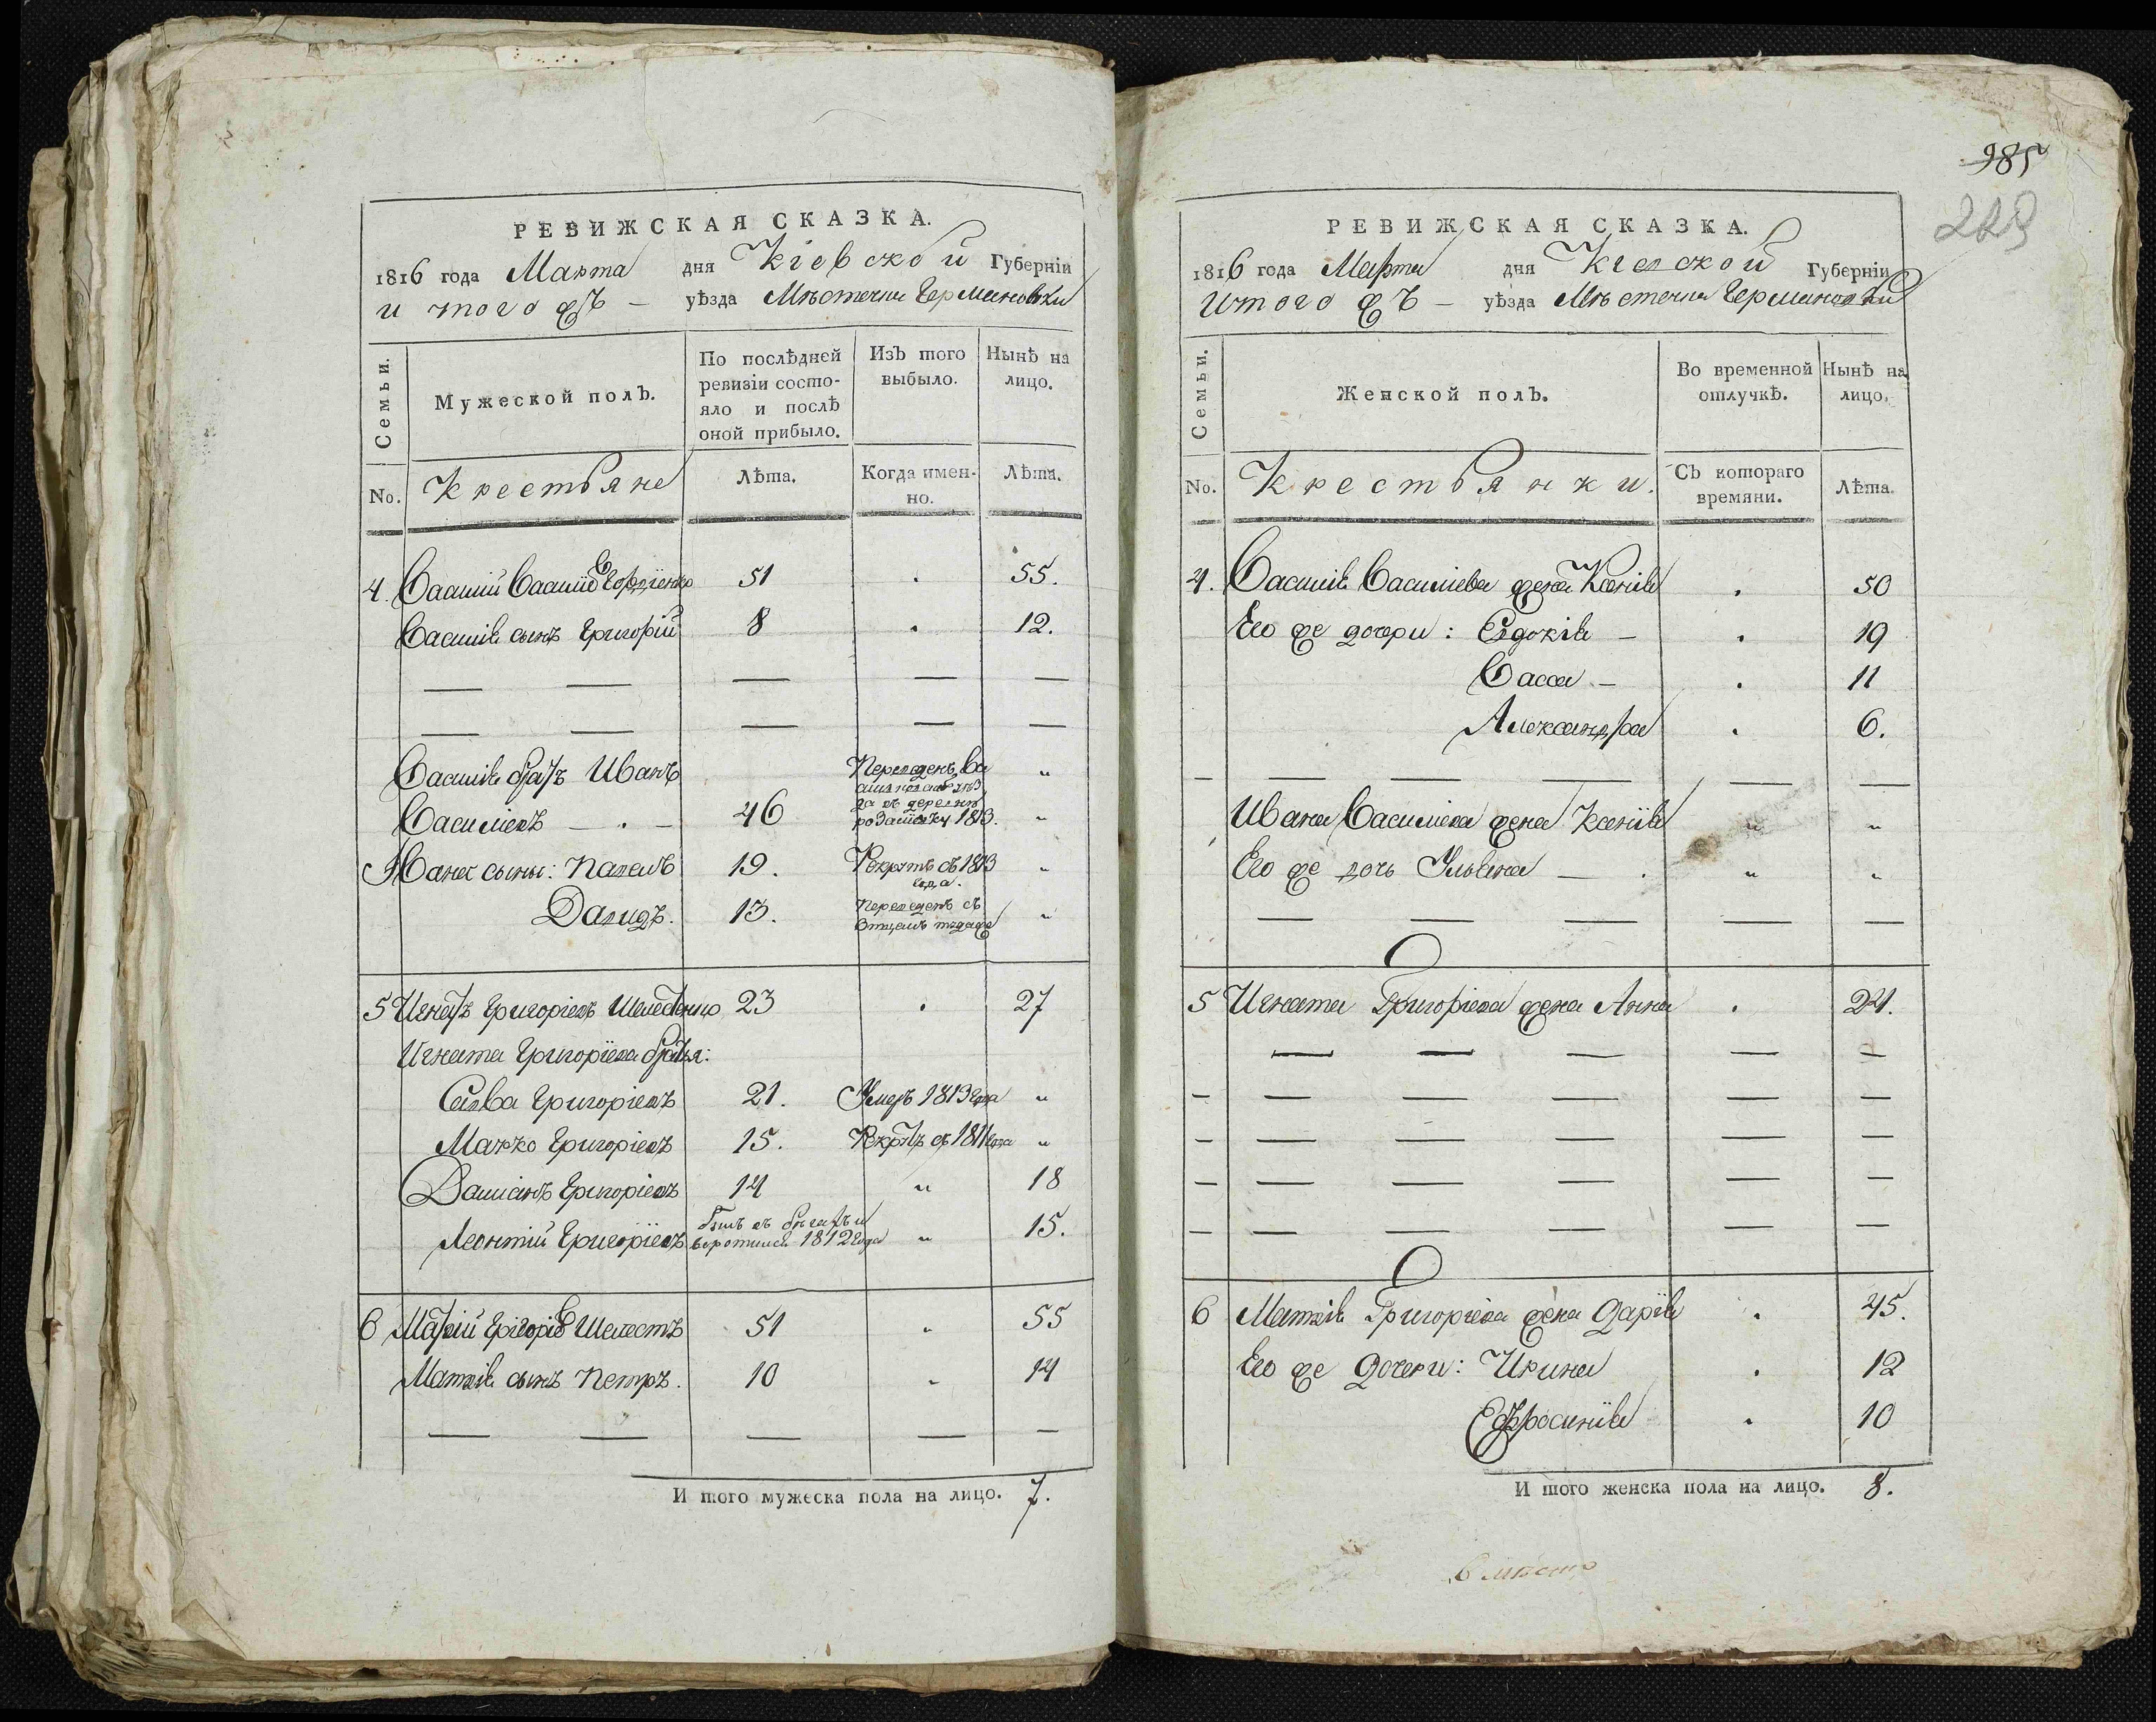 РЕВИЖСКАЯ СКАЗКА.
1816 года Марта дня Кіевской Губерніи
и того жъ — уѣзда Мѣстечка Германовки
Семьи.
Мужеской полъ.
По послѣдней ревизіи состо-
яло и послѣ
оной прибыло.
Изъ того
выбыло.
Нынѣ на
лицо.
No.
Крестьяне
Лѣта.
Когда имен-
но.
Лѣта.
4. Василій Василіевъ 51 . 55.
Василія сынъ Григорій 8 . 12.
Василія братъ Иванъ Переведенъ „
Василіевъ — . — 46 въ деревню 1813. „
Ивана сыны: Павелъ 19. Рекрутъ съ 1813 „
года.
Давидъ. 13. Переведенъ съ
Отцемъ туда же „
5 Игнатъ Григоріевъ Шелестенко 23 . 27
Игната Григоріева братья:
Савва Григоріевъ 21. Умеръ 1813 года „
Марко Григоріевъ 15. Рекрутъ съ 1811 года „
Даміанъ Григоріевъ 14 „ 18
Леонтій Григоріевъ Былъ въ бѣгахъ и
воротился 1812 года „ 15.
6 Матвій Григоріевъ Шелестъ 51 . 55
Матвія сынъ Петръ. 10 . 14
И того мужеска пола на лицо. 7.
985
РЕВИЖСКАЯ СКАЗКА.
1816 года Марта дня Кіевской Губерніи
и того жъ — уѣзда Мѣстечка Германовки
Семьи.
Женской полъ.
Во временной
отлучкѣ.
Нынѣ на
лицо.
No.
Крестьянки.
Съ котораго
времяни.
Лѣта.
4. Василія Василіева жена Ксенія . 50
Его же дочери: Евдокія — . 19
Васса — . 11
Александра . 6.
Ивана Василіева жена Ксенія „ „
Его же дочь Ульяна — . „ „
5 Игната Григоріева жена Анна . 24.
6 Матвія Григоріева жена Дарія . 45.
Его же Дочери: Ирина . 12
Ефросинія . 10
И того женска пола на лицо. 8.